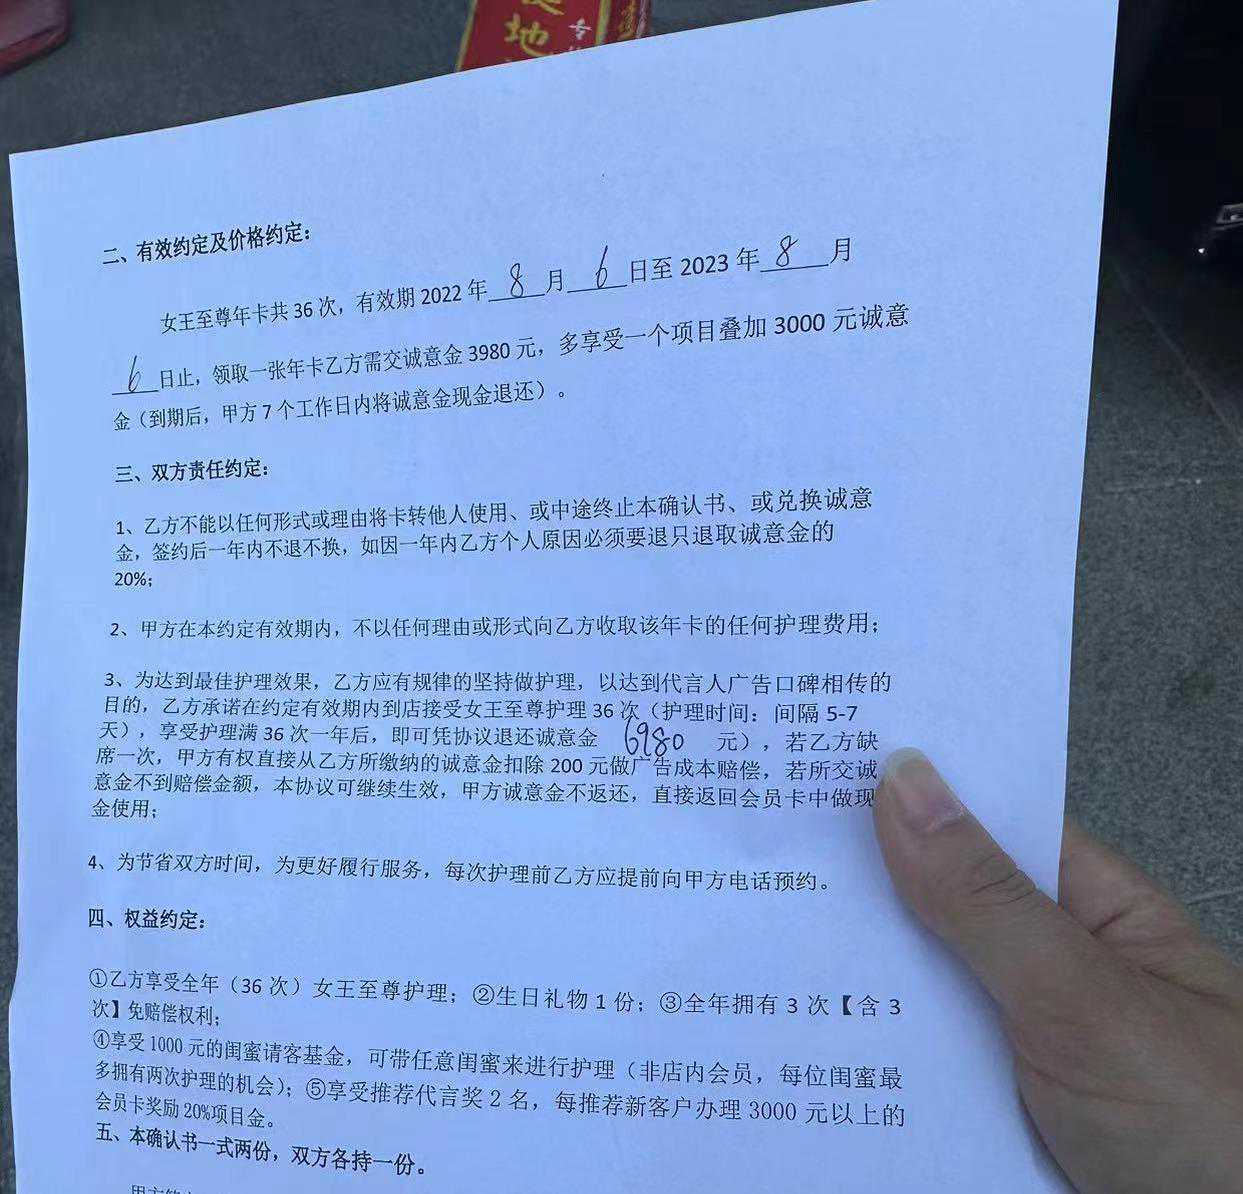 地
二、有效约定及价格约定：
女王至尊年卡共 36 次，有效期 2022 年 8 月 6 日至 2023 年 8 月
6 日止，领取一张年卡乙方需交诚意金 3980 元，多享受一个项目叠加 3000 元诚意
金（到期后，甲方 7 个工作日内将诚意金现金退还）。
三、双方责任约定：
1、乙方不能以任何形式或理由将卡转他人使用、或中途终止本确认书、或兑换诚意
金，签约后一年内不退不换，如因一年内乙方个人原因必须要退只退取诚意金的
20%；
2、甲方在本约定有效期内，不以任何理由或形式向乙方收取该年卡的任何护理费用；
3、为达到最佳护理效果，乙方应有规律的坚持做护理，以达到代言人广告口碑相传的
目的，乙方承诺在约定有效期内到店接受女王至尊护理 36 次（护理时间：间隔 5-7
天），享受护理满 36 次一年后，即可凭协议退还诚意金 6980 元），若乙方缺
席一次，甲方有权直接从乙方所缴纳的诚意金扣除 200 元做广告成本赔偿，若所交诚
意金不到赔偿金额，本协议可继续生效，甲方诚意金不返还，直接返回会员卡中做现
金使用；
4、为节省双方时间，为更好履行服务，每次护理前乙方应提前向甲方电话预约。
四、权益约定：
①乙方享受全年（36 次）女王至尊护理；②生日礼物 1 份；③全年拥有 3 次【含 3
次】免赔偿权利；
④享受 1000 元的闺蜜请客基金，可带任意闺蜜来进行护理（非店内会员，每位闺蜜最
多拥有两次护理的机会）；⑤享受推荐代言奖 2 名，每推荐新客户办理 3000 元以上的
会员卡奖励 20%项目金。
五、本确认书一式两份，双方各持一份。